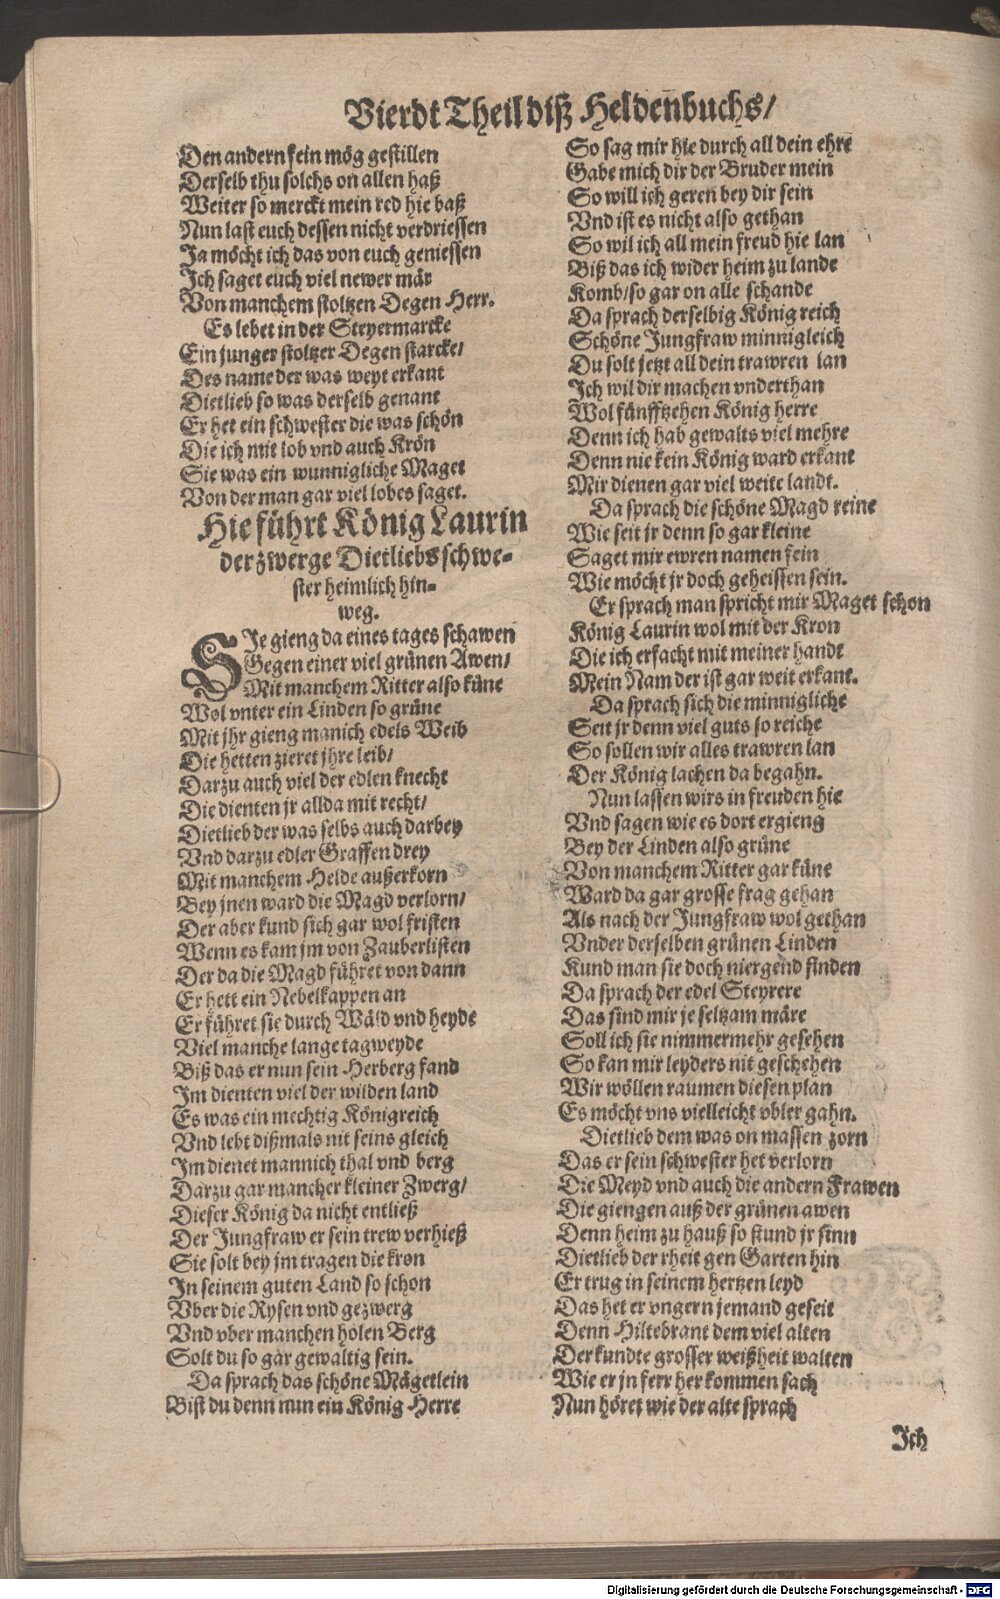 Vierdt Theil diß Heldenbuchs/
Den andern kein mög gestillen
Derselb thu solchs on allen haß
Weiter so merckt mein red hie baß
Nun last euch dessen nicht verdriessen
Ja möcht ich das von euch geniessen
Ich saget euch viel newer mär
Von manchem stoltzen Degen Herr.
Es lebet in der Steyermarcke
Ein junger stoltzer Degen starcke/
Des name der was weyt erkant
Dietlieb so was derselb genant
Er het ein schwester die was schön
Die ich mit lob vnd auch Krön
Sie was ein wunnigliche Maget
Von der man gar viel lobes saget.
Hie führt König Laurin
der zwerge Dietliebs schwe-
ster heimlich hin-
weg.
SJe gieng da eines tages schawen
Gegen einer viel grünen Awen/
Mit manchem Ritter also küne
Wol vnter ein Linden so grüne
Mit jhr gieng manich edels Weib
Die hetten zieret jhre leib/
Darzu auch viel der edlen knecht
Die dienten jr allda mit recht/
Dietlieb der was selbs auch darbey
Vnd darzu edler Graffen drey
Mit manchem Helde außerkorn
Bey jnen ward die Magd verlorn/
Der aber kund sich gar wol fristen
Wenn es kam jm von Zauberlisten
Der da die Magd führet von dann
Er hett ein Nebelkappen an
Er führet sie durch Wäld vnd heyde
Viel manche lange tagweyde
Biß das er nun sein Herberg fand
Im dienten viel der wilden land
Es was ein mechtig Königreich
Vnd lebt dißmals nit seins gleich
Im dienet mannich thal vnd berg
Darzu gar mancher kleiner Zwerg/
Dieser König da nicht entließ
Der Jungfraw er sein trew verhieß
Sie solt bey jm tragen die kron
In seinem guten Land so schon
Vber die Rysen vnd gezwerg
Vnd vber manchen holen Berg
Solt du so gar gewaltig sein.
Da sprach das schöne Mägetlein
Bist du denn nun ein König Herre
So sag mir hie durch all dein ehre
Gabe mich dir der Bruder mein
So will ich geren bey dir sein
Vnd ist es nicht also gethan
So wil ich all mein freud hie lan
Biß das ich wider heim zu lande
Komb/so gar on alle schande
Da sprach derselbig König reich
Schöne Jungfraw minnigleich
Du solt jetzt all dein trawren lan
Ich wil dir machen vnderthan
Wol fünfftzehen König herre
Denn ich hab gewalts viel mehre
Denn nie kein König ward erkant
Mir dienen gar viel weite landt.
Da sprach die schöne Magd reine
Wie seit jr denn so gar kleine
Saget mir ewren namen fein
Wie möcht jr doch geheissen sein.
Er sprach man spricht mir Maget schon
König Laurin wol mit der Kron
Die ich erfacht mit meiner handt
Mein Nam der ist gar weit erkant.
Da sprach sich die minnigliche
Seit jr denn viel guts so reiche
So sollen wir alles trawren lan
Der König lachen da begahn.
Nun lassen wirs in freuden hie
Vnd sagen wie es dort ergieng
Bey der Linden also grüne
Von manchem Ritter gar küne
Ward da gar grosse frag gehan
Als nach der Jungfraw wol gethan
Vnder derselben grünen Linden
Kund man sie doch niergend finden
Da sprach der edel Steyrere
Das sind mir je seltzam märe
Soll ich sie nimmermehr gesehen
So kan mir leyders nit geschehen
Wir wöllen raumen diesen plan
Es möcht vns vielleicht vbler gahn.
Dietlieb dem was on massen zorn
Das er sein schwester het verlorn
Die Meyd vnd auch die andern Frawen
Die giengen auß der grünen awen
Denn heim zu hauß so stund jr sinn
Dietlieb der rheit gen Garten hin
Er trug in seinem hertzen leyd
Das het er vngern jemand geseit
Denn Hiltebrant dem viel alten
Der kundte grosser weißheit walten
Wie er jn ferr her kommen sach
Nun höret wie der alte sprach
Ich
Digitalisierung gefördert durch die Deutsche Forschungsgemeinschaft - DFG